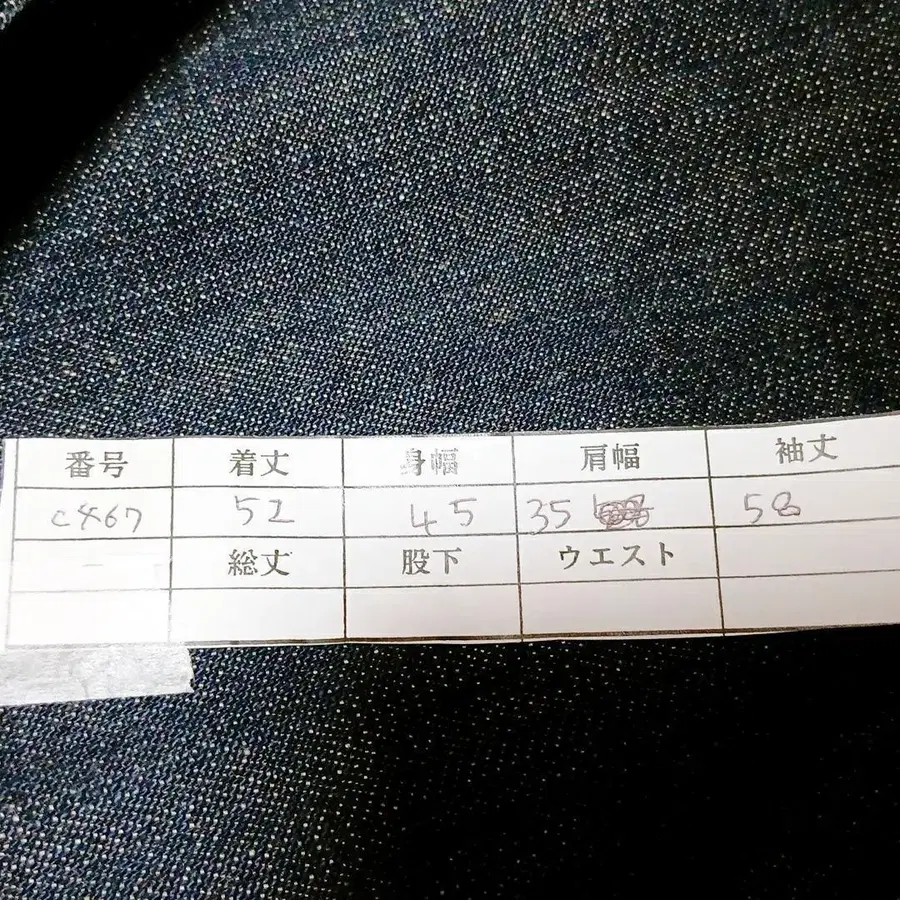 番号 着丈 身幅 肩幅 袖丈
C467 52 45 35 58
総丈 股下 ウエスト